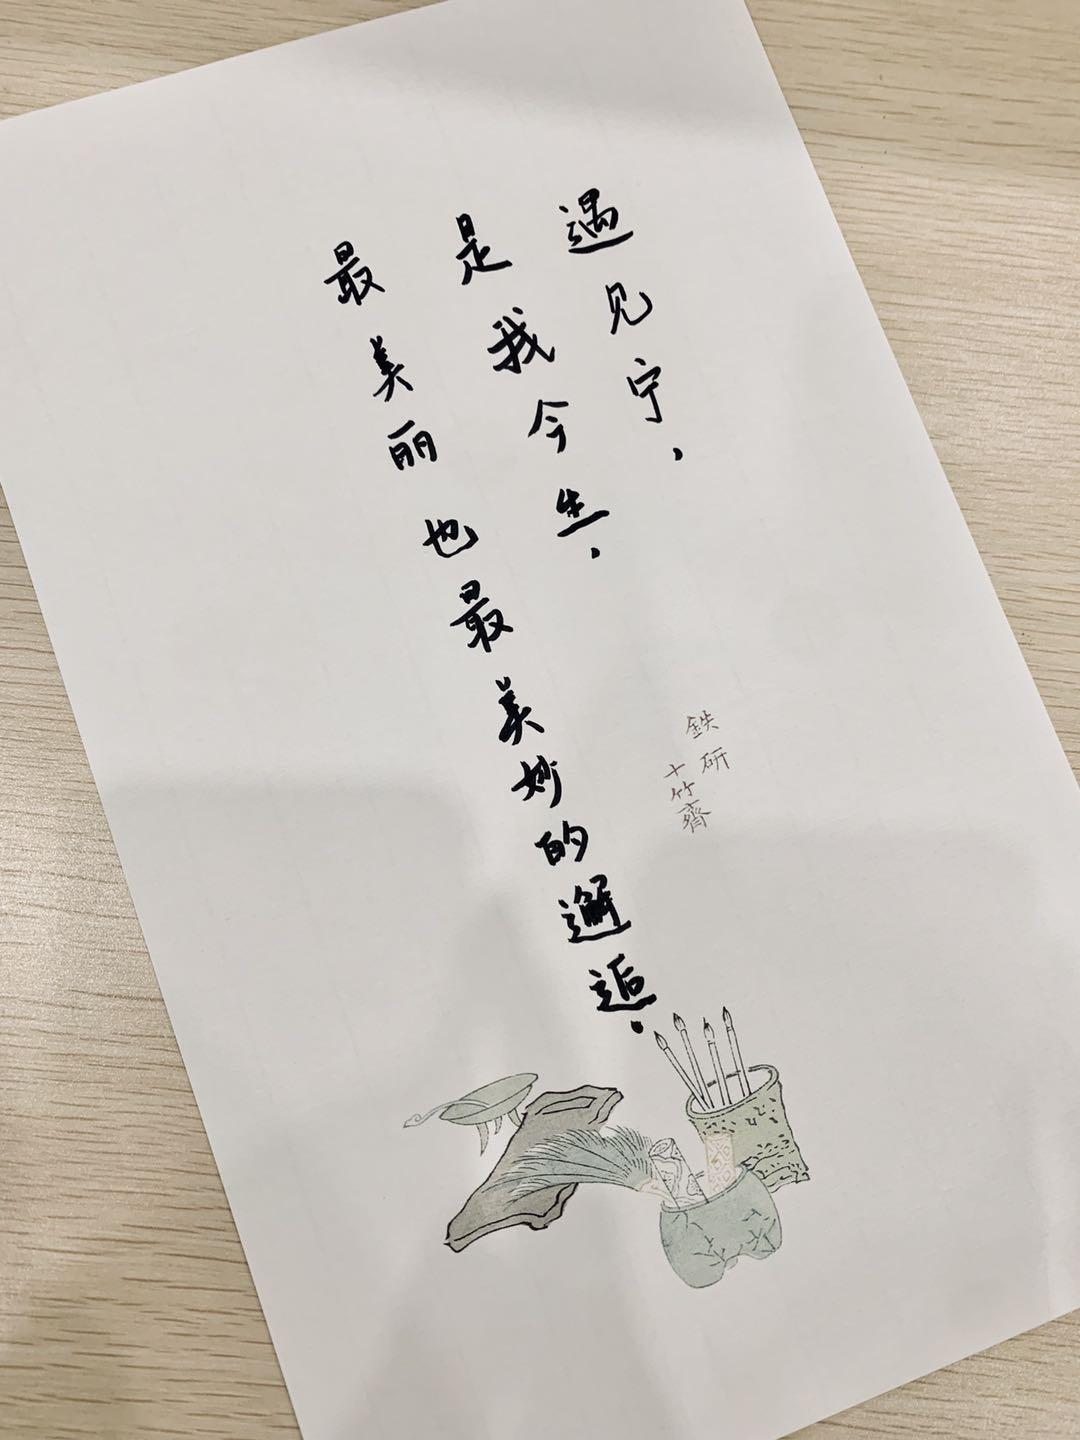 遇见宁，
是我今生，
最美丽也最美妙的邂逅。
鉄研
十竹齊